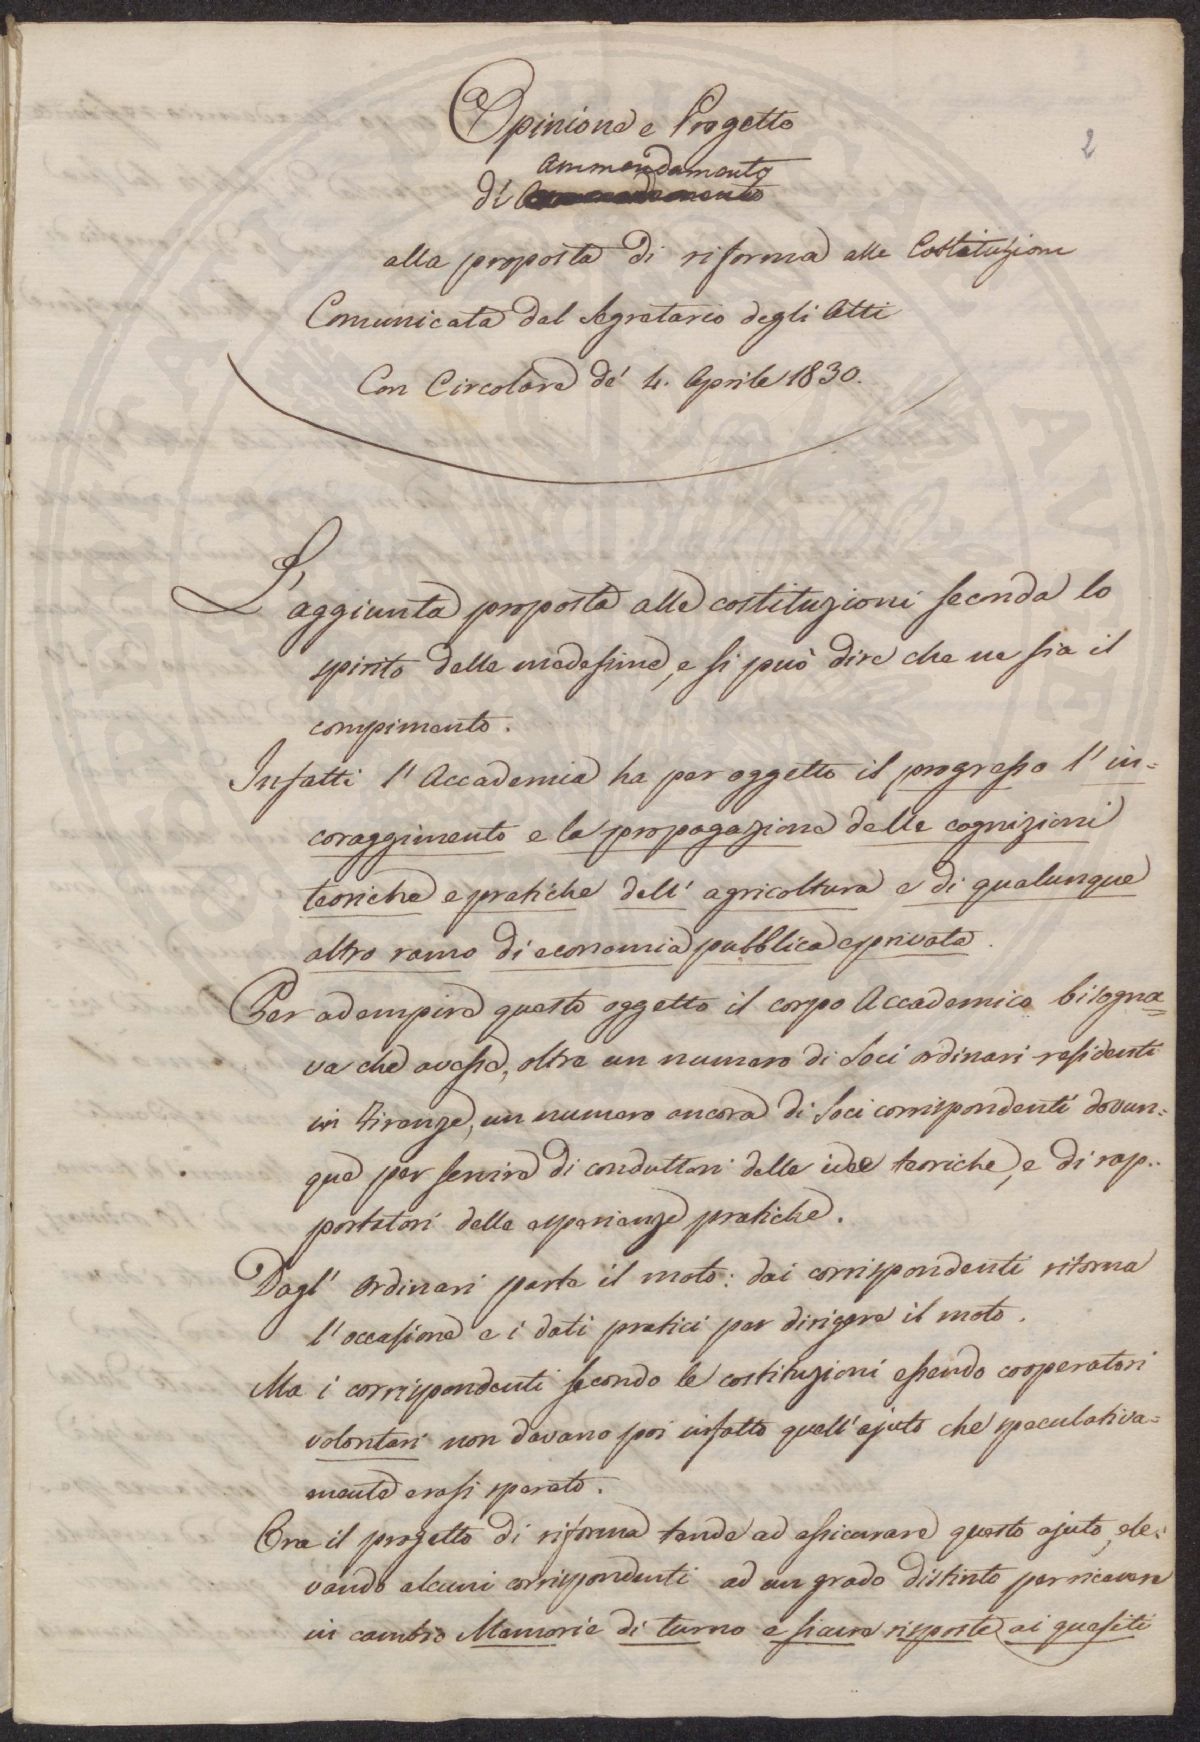 2
Opinione e Progetto
Ammendamento
di
alla proposta di riforma alle Costituzioni
Comunicata dal Segretario degli Atti
Con Circolare de' 4. Aprile 1830.
L'aggiunta proposta alle costituzioni seconda lo
spirito delle medesime, e si può dire che ne sia il
compimento.
Infatti l'Accademia ha per oggetto il progresso l'in=
coraggimento e la propagazione delle cognizioni
teoriche e pratiche dell'agricoltura e di qualunque
altro ramo di economia pubblica e privata.
Per adempire questo oggetto il corpo Accademico bisogna=
va che avesse, oltre un numero di Soci ordinari residenti
in Firenze, un numero ancora di Soci corrispondenti dovun=
que per servire di conduttori delle idee teoriche, e di rap=
portatori delle esperienze pratiche.
Dagl'Ordinari parte il moto: dai corrispondenti ritorna
l'occasione e i dati pratici per dirigere il moto.
Ma i corrispondenti secondo le costituzioni essendo cooperatori
volontari non davano poi infatto quell'ajuto che speculativa=
mente erasi sperato.
Ora il progetto di riforma tende ad assicurare questo ajuto, ele=
vando alcuni corrispondenti ad un grado distinto per ricavare
in cambio Memorie di turno e sicure risposte ai quesiti